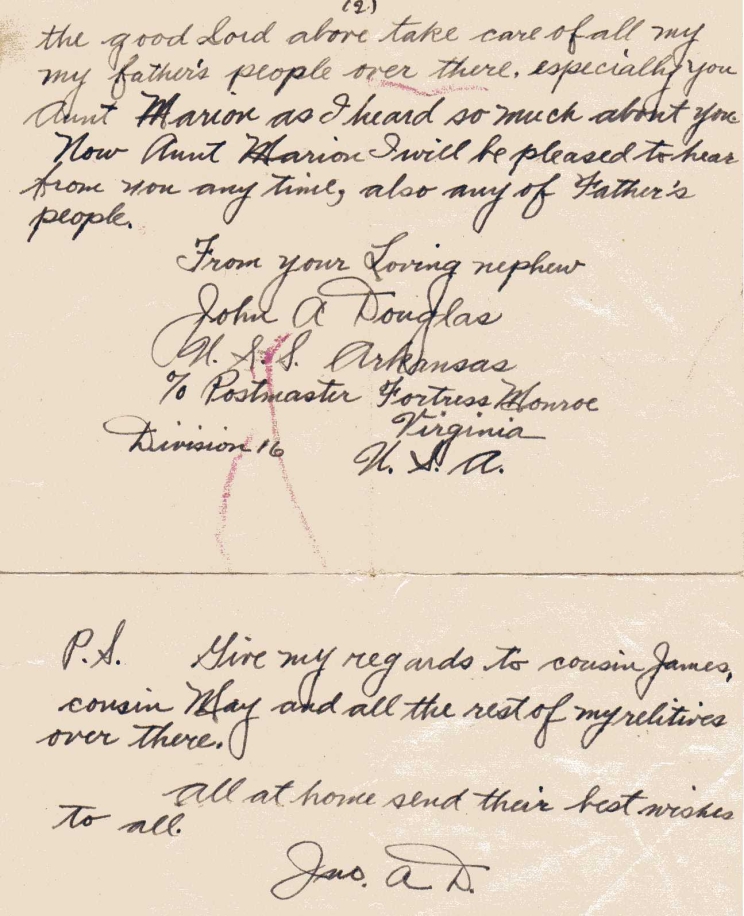 (2)
the good Lord above take care of all my
my father's people over there, especially you
Aunt Marion as I heard so much about you
Now Aunt Marion I will be pleased to hear
from you any time, also any of Father's
people.
From your Loving nephew
John A Douglas
U. S. S. Arkansas
c/o Postmaster Fortress Monroe
Virginia
Division 16 U. S. A.
P.S. Give my regards to cousin James,
cousin May and all the rest of my relitives
over there.
All at home send their best wishes
to all.
Jno. A D.